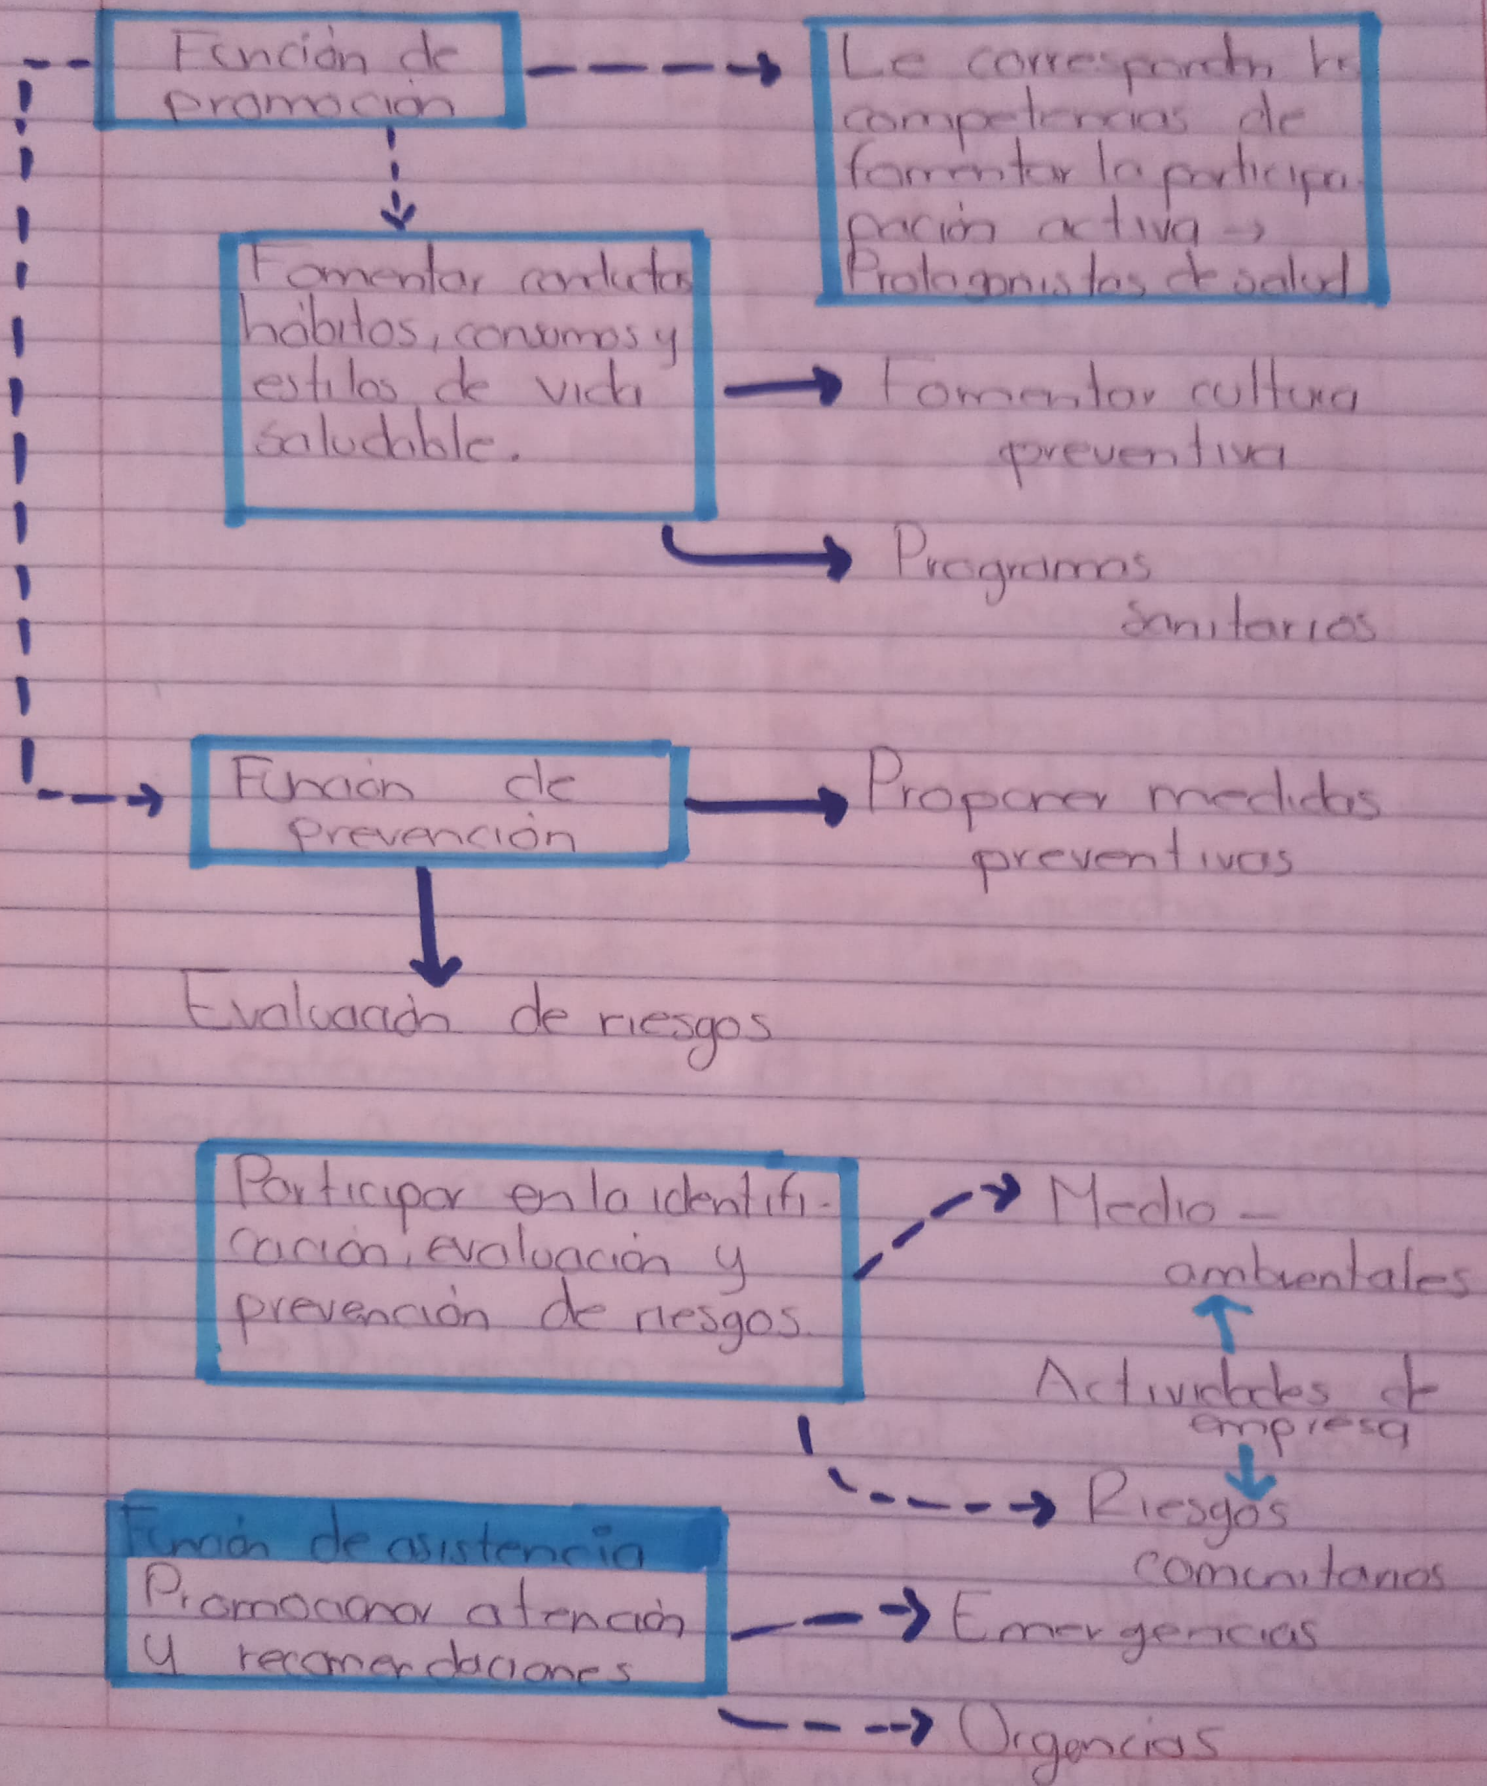 Función de
promoción
Le corresponden
competencias de
fomentar la participa
pación activa →
Protagonistas de salud
Fomentar conductas
hábitos, consumos y
estilos de vida
saludable.
Fomentar cultura
preventiva
Programas
sanitarios
Función de
prevención
Proponer medidas
preventivas
Evaluación de riesgos
Participar en la identifi-
cación, evaluación y
prevención de riesgos.
Medio-
ambientales
Actividades de
empresa
Riesgos
comunitarios
Función de asistencia
Promocionar atención
y recomendaciones
Emergencias
Urgencias